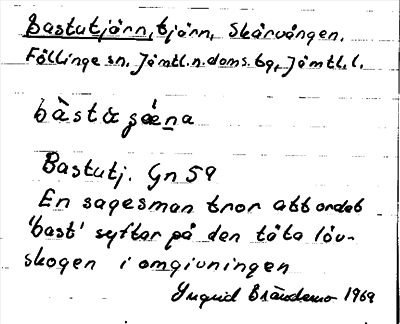 Bastutjärn, tjärn, Skärvången.
Föllinge sn. Jämtl.n.doms.bg, Jämtl.l.
Bastutj. Gn 59
En sagesman tror att ordet
'bast' syftar på den täta löv-
skogen i omgivningen
Ingrid Brändemo 1969